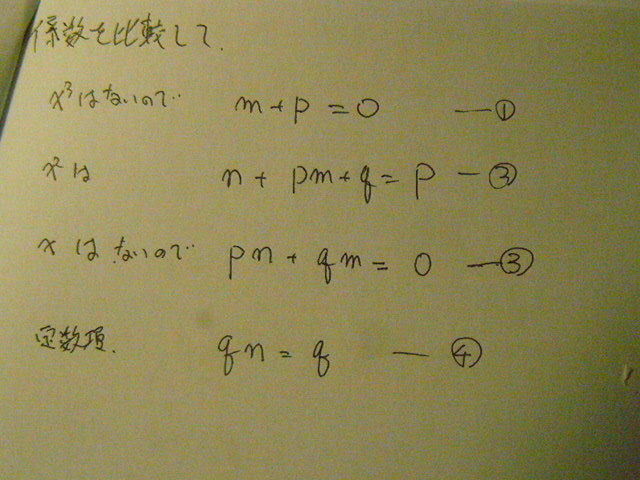 係数を比較して.
x³はないので m+p=0 —①
x²は n+pm+q=p —③
xはないので pn+qm=0 —③
定数項. qn=q —④